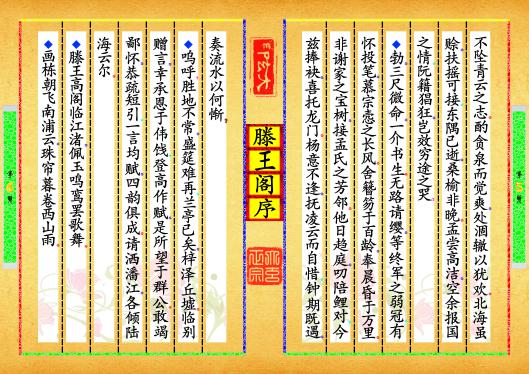 不坠青云之志酌贪泉而觉爽处涸辙以犹欢北海虽
赊扶摇可接东隅已逝桑榆非晚孟尝高洁空余报国
之情阮籍猖狂岂效穷途之哭
勃三尺微命一介书生无路请缨等终军之弱冠有
怀投笔慕宗悫之长风舍簪笏于百龄奉晨昏于万里
非谢家之宝树接孟氏之芳邻他日趋庭叨陪鲤对今
兹捧袂喜托龙门杨意不逢抚凌云而自惜钟期既遇
滕王阁序
奏流水以何惭
呜呼胜地不常盛筵难再兰亭已矣梓泽丘墟临别
赠言幸承恩于伟饯登高作赋是所望于群公敢竭
鄙怀恭疏短引一言均赋四韵俱成请洒潘江各倾陆
海云尔
滕王高阁临江渚佩玉鸣鸾罢歌舞
画栋朝飞南浦云珠帘暮卷西山雨